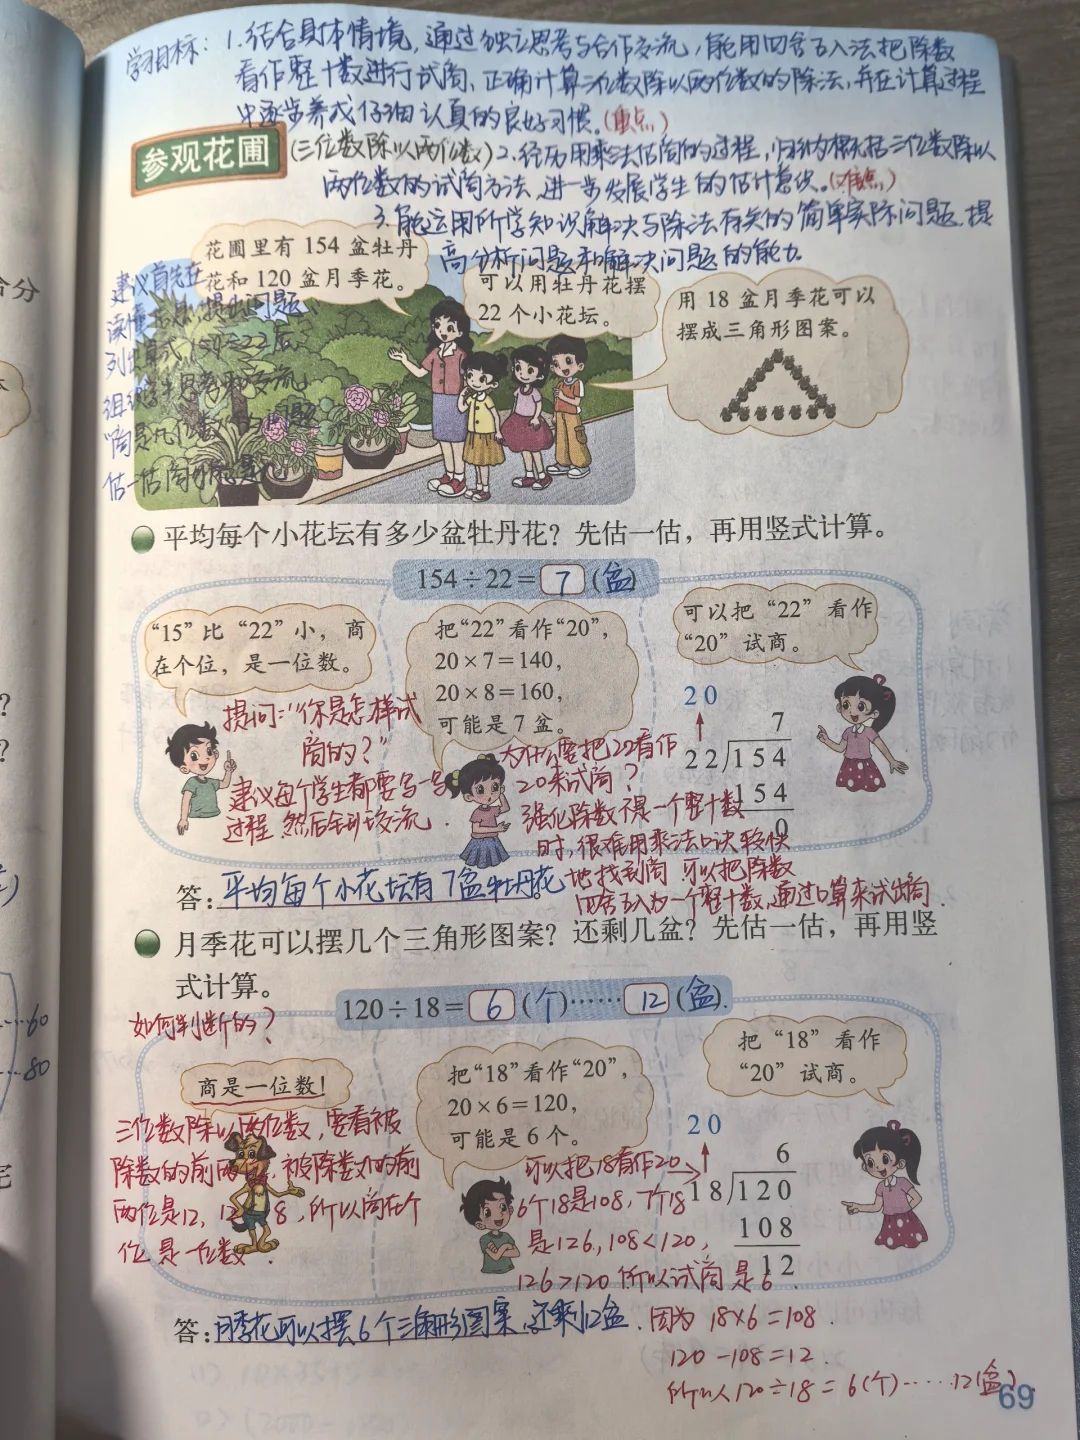 学习目标：1.结合具体情境，通过独立思考与合作交流，能用四舍五入法把除数
看作整十数进行试商、正确计算三位数除以两位数的除法，并在计算过程
中逐步养成仔细认真的良好习惯。(重点)
参观花圃
(三位数除以两位数)
2.经历用乘法估商的过程，归纳概括三位数除以
两位数的试商方法，进一步发展学生的估计意识。(难点)
3.能运用所学知识解决与除法有关的简单实际问题，提
高分析问题和解决问题的能力。
花圃里有 154 盆牡丹
花和 120 盆月季花。
可以用牡丹花摆
22 个小花坛。
用 18 盆月季花可以
摆成三角形图案。
建议首先在
读懂信息，提出问题、
列出算式154÷22后，
组织学生思考和交流
"商是几位数"
估一估商
平均每个小花坛有多少盆牡丹花？先估一估，再用竖式计算。
154÷22= 7 (盆)
“15”比“22”小，商
在个位，是一位数。
把“22”看作“20”，
20×7=140，
20×8=160，
可能是 7 盆。
可以把“22”看作
“20”试商。
20
7
22 154
154
0
提问："你是怎样试
商的？"
建议每个学生都要写一写
过程 然后全班交流.
为什么要把22看作
20来试商？
强化除数不是一个整十数
时，很难用乘法口诀较快
地找到商 可以把除数
四舍五入为一个整十数，通过口算来试出商.
答：平均每个小花坛有7盆牡丹花。
月季花可以摆几个三角形图案？还剩几盆？先估一估，再用竖
式计算。
120÷18= 6 (个)…… 12 (盆).
如何判断的？
商是一位数！
三位数除以两位数，要看被
除数的前两 被除数的前
两位是12，12 8，所以商在个
位 是一位数.
把“18”看作“20”，
20×6=120，
可能是 6 个。
把“18”看作
“20”试商。
20
6
18 120
108
12
可以把18看作20
6个18是108，7个18
是126，108<120，
126>120 所以试商是6.
答：月季花可以摆6个三角形图案，还剩12盆.
因为 18×6=108.
120-108=12.
所以120÷18=6(个)……12(盆).
69
…60
…80